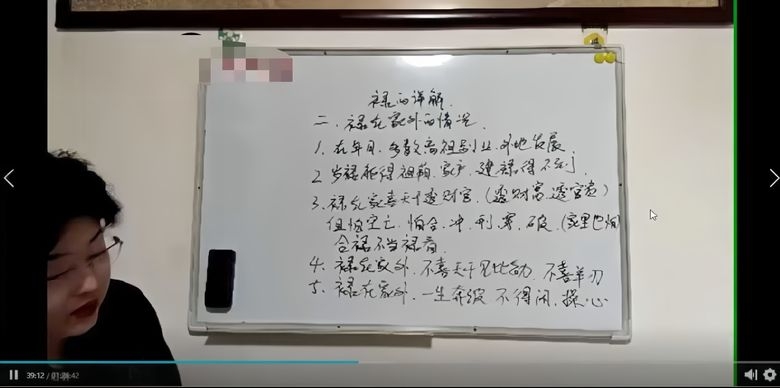 禄的详解.
二、禄在家外的情况.
1. 在年月,多数离祖别业.外地发展
2 岁禄能得祖荫、家产,建禄得不到,
3. 禄在家喜天干透财官,(透财富,透官贵)
但怕空亡,怕合、冲、刑、害、破、(家里也怕)
合禄不当禄看
4. 禄在家外,不喜天干见比劫,不喜羊刃
5、禄在家外,一生奔波 不得闲,操心
39:12